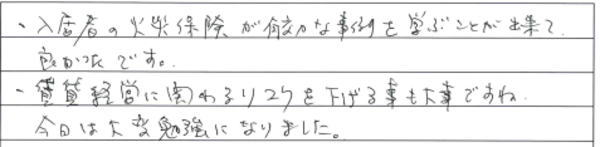 ・入居者の火災保険が有効な事例を学ぶことが出来て
良かったです。
・賃貸経営に関わるリスクを下げる事も大事ですね
今日は大変勉強になりました。